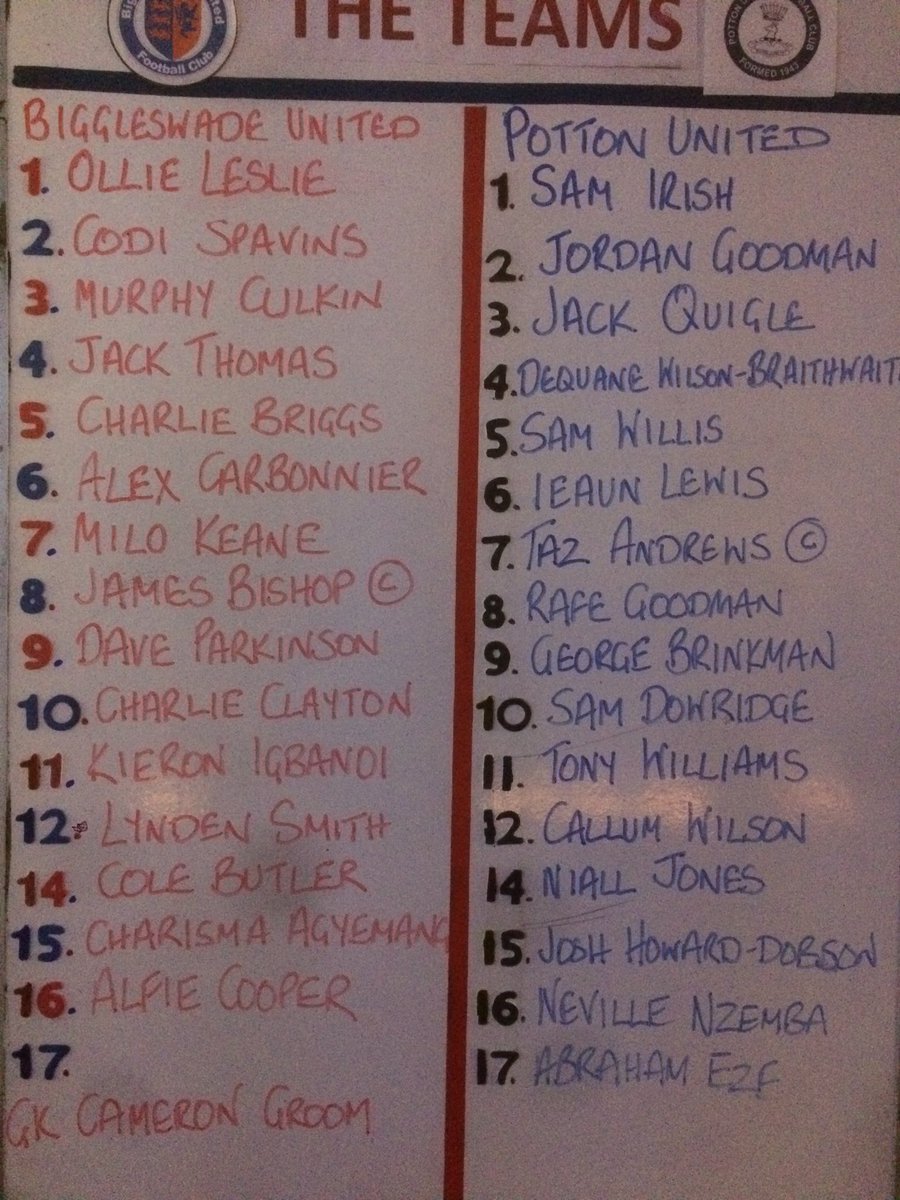 THE TEAMS
Football Club
POTTON
FORMED 1943
BIGGLESWADE UNITED
1. OLLIE LESLIE
2. CODI SPAVINS
3. MURPHY CULKIN
4. JACK THOMAS
5. CHARLIE BRIGGS
6. ALEX CARBONNIER
7. MILO KEANE
8. JAMES BISHOP ©
9. DAVE PARKINSON
10. CHARLIE CLAYTON
11. KIERON IGBANOI
12. LYNDEN SMITH
14. COLE BUTLER
15. CHARISMA AGYEMANG
16. ALFIE COOPER
17.
GK CAMERON GROOM
POTTON UNITED
1. SAM IRISH
2. JORDAN GOODMAN
3. JACK QUIGLE
4. DEQUANE WILSON-BRAITHWAIT
5. SAM WILLIS
6. IEAUN LEWIS
7. TAZ ANDREWS ©
8. RAFE GOODMAN
9. GEORGE BRINKMAN
10. SAM DOWRIDGE
11. TONY WILLIAMS
12. CALLUM WILSON
14. NIALL JONES
15. JOSH HOWARD-DOBSON
16. NEVILLE NZEMBA
17. ABRAHAM EZE